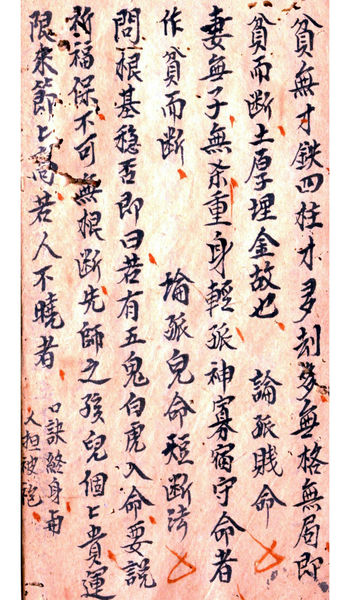 貧無才鉄四柱才多刻多無格無局即
貧而断土厚埋金故也 論孤賎命
妻無子無杀重身輕孤神寡宿守命者
作貧而断 論孤兒命短断法
問根基穏否即曰若有五鬼白虎入命要説
祈福保不可無根断先師之孩兒個匕貴運
限來節匕高若人不曉者
口訣終身